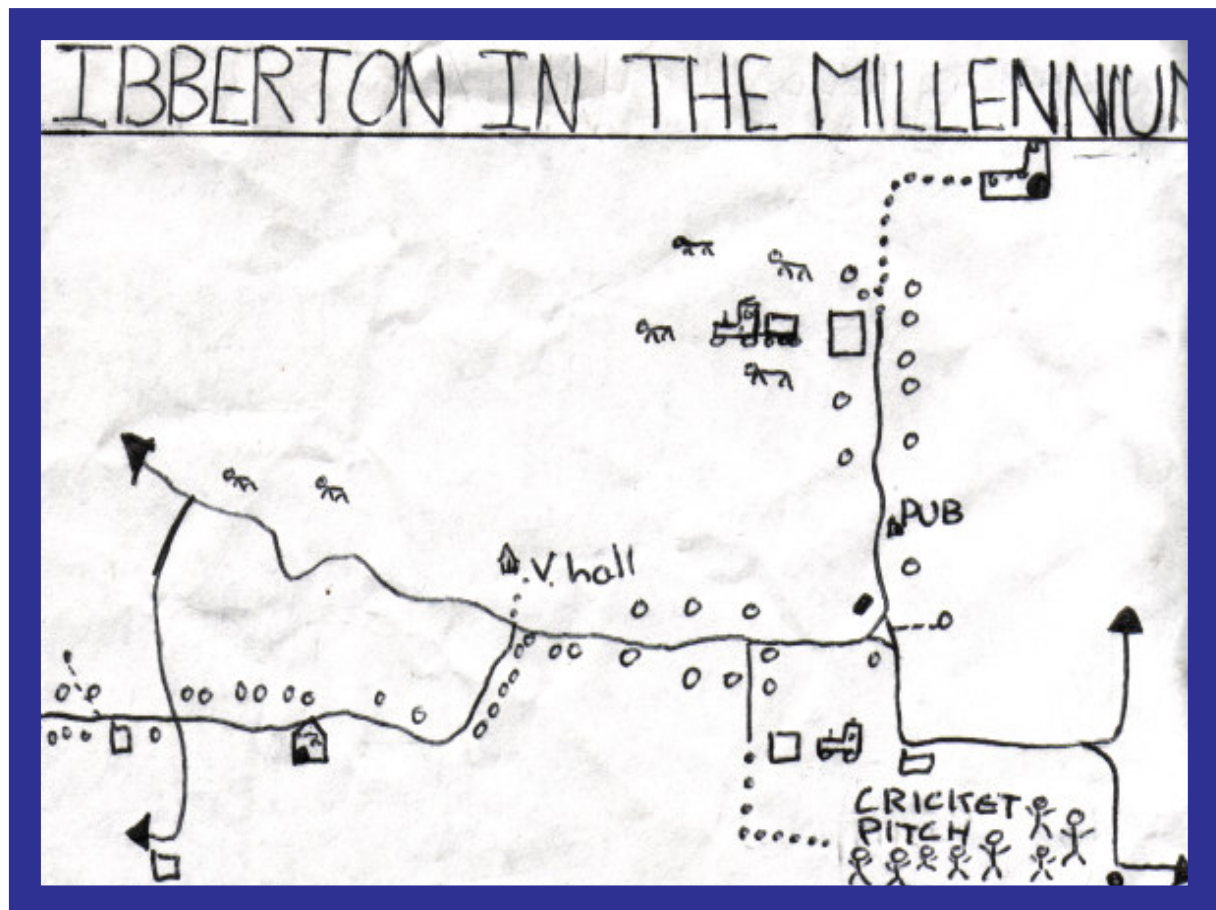 IBBERTON IN THE MILLENNIUM
PUB
V. hall
CRICKET
PITCH